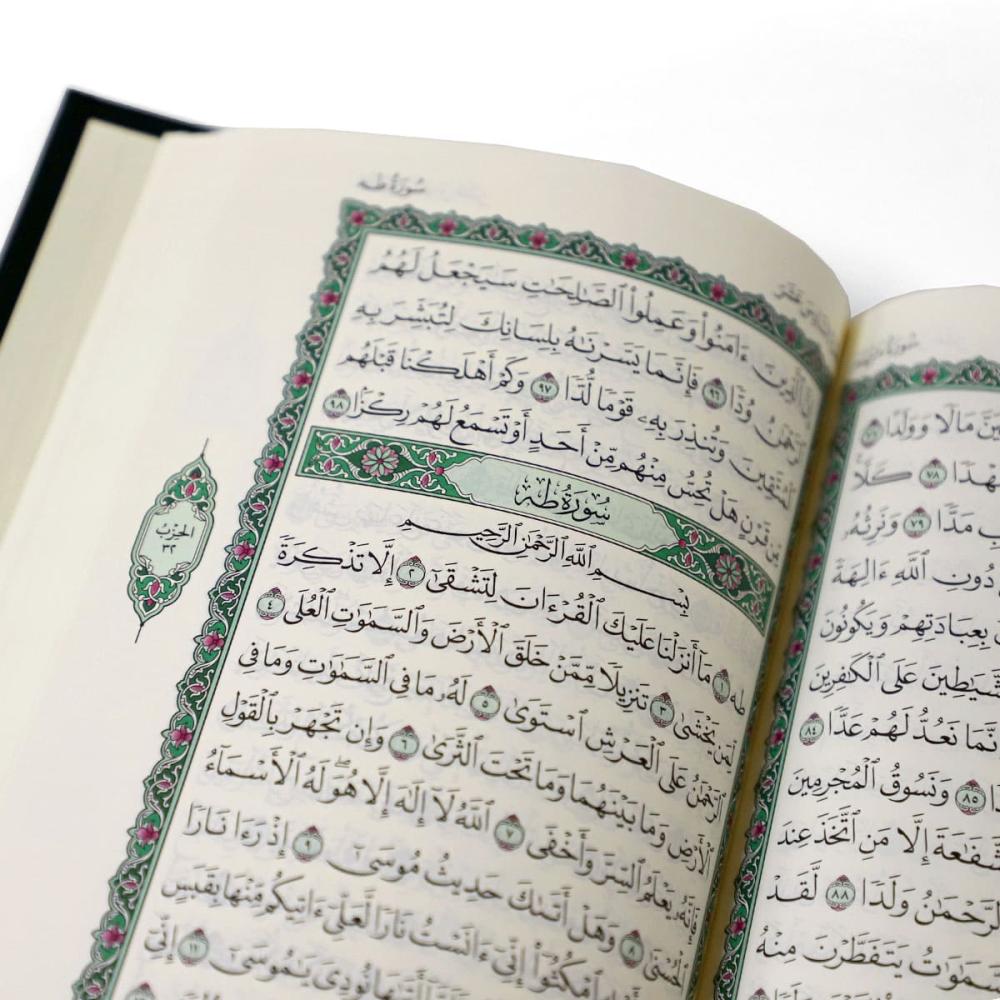 مَالًا وَوَلَدًا ٧٧
عَهْدًا ٧٨ كَلَّا
مَدًّا ٧٩ وَنَرِثُهُۥ
دُونِ ٱللَّهِ ءَالِهَةً
بِعِبَادَتِهِمْ وَيَكُونُونَ
ٱلشَّيَٰطِينَ عَلَى ٱلْكَٰفِرِينَ
إِنَّمَا نَعُدُّ لَهُمْ عَدًّا ٨٤
٨٥ وَنَسُوقُ ٱلْمُجْرِمِينَ
ٱلشَّفَٰعَةَ إِلَّا مَنِ ٱتَّخَذَ عِندَ
ٱلرَّحْمَٰنُ وَلَدًا ٨٨ لَّقَدْ
ٱلسَّمَٰوَٰتُ يَتَفَطَّرْنَ مِنْهُ
سُورَةُ طه
إِنَّ ٱلَّذِينَ ءَامَنُوا۟ وَعَمِلُوا۟ ٱلصَّٰلِحَٰتِ سَيَجْعَلُ لَهُمُ
ٱلرَّحْمَٰنُ وُدًّا ٩٦ فَإِنَّمَا يَسَّرْنَٰهُ بِلِسَانِكَ لِتُبَشِّرَ بِهِ
ٱلْمُتَّقِينَ وَتُنذِرَ بِهِۦ قَوْمًا لُّدًّا ٩٧ وَكَمْ أَهْلَكْنَا قَبْلَهُم
مِّن قَرْنٍ هَلْ تُحِسُّ مِنْهُم مِّنْ أَحَدٍ أَوْ تَسْمَعُ لَهُمْ رِكْزًا ٩٨
سُورَةُ طه
بِسْمِ ٱللَّهِ ٱلرَّحْمَٰنِ ٱلرَّحِيمِ
طه ١ مَآ أَنزَلْنَا عَلَيْكَ ٱلْقُرْءَانَ لِتَشْقَىٰٓ ٢ إِلَّا تَذْكِرَةً
لِّمَن يَخْشَىٰ ٣ تَنزِيلًا مِّمَّنْ خَلَقَ ٱلْأَرْضَ وَٱلسَّمَٰوَٰتِ ٱلْعُلَى ٤
ٱلرَّحْمَٰنُ عَلَى ٱلْعَرْشِ ٱسْتَوَىٰ ٥ لَهُۥ مَا فِى ٱلسَّمَٰوَٰتِ وَمَا فِى
ٱلْأَرْضِ وَمَا بَيْنَهُمَا وَمَا تَحْتَ ٱلثَّرَىٰ ٦ وَإِن تَجْهَرْ بِٱلْقَوْلِ
فَإِنَّهُۥ يَعْلَمُ ٱلسِّرَّ وَأَخْفَى ٧ ٱللَّهُ لَآ إِلَٰهَ إِلَّا هُوَ لَهُ ٱلْأَسْمَآءُ
ٱلْحُسْنَىٰ ٨ وَهَلْ أَتَىٰكَ حَدِيثُ مُوسَىٰٓ ٩ إِذْ رَءَا نَارًا
فَقَالَ لِأَهْلِهِ ٱمْكُثُوٓا۟ إِنِّىٓ ءَانَسْتُ نَارًا لَّعَلِّىٓ ءَاتِيكُم مِّنْهَا بِقَبَسٍ
أَتَىٰهَا نُودِىَ يَٰمُوسَىٰٓ ١١ إِنِّىٓ
١٢
الحِزْب
٣٢